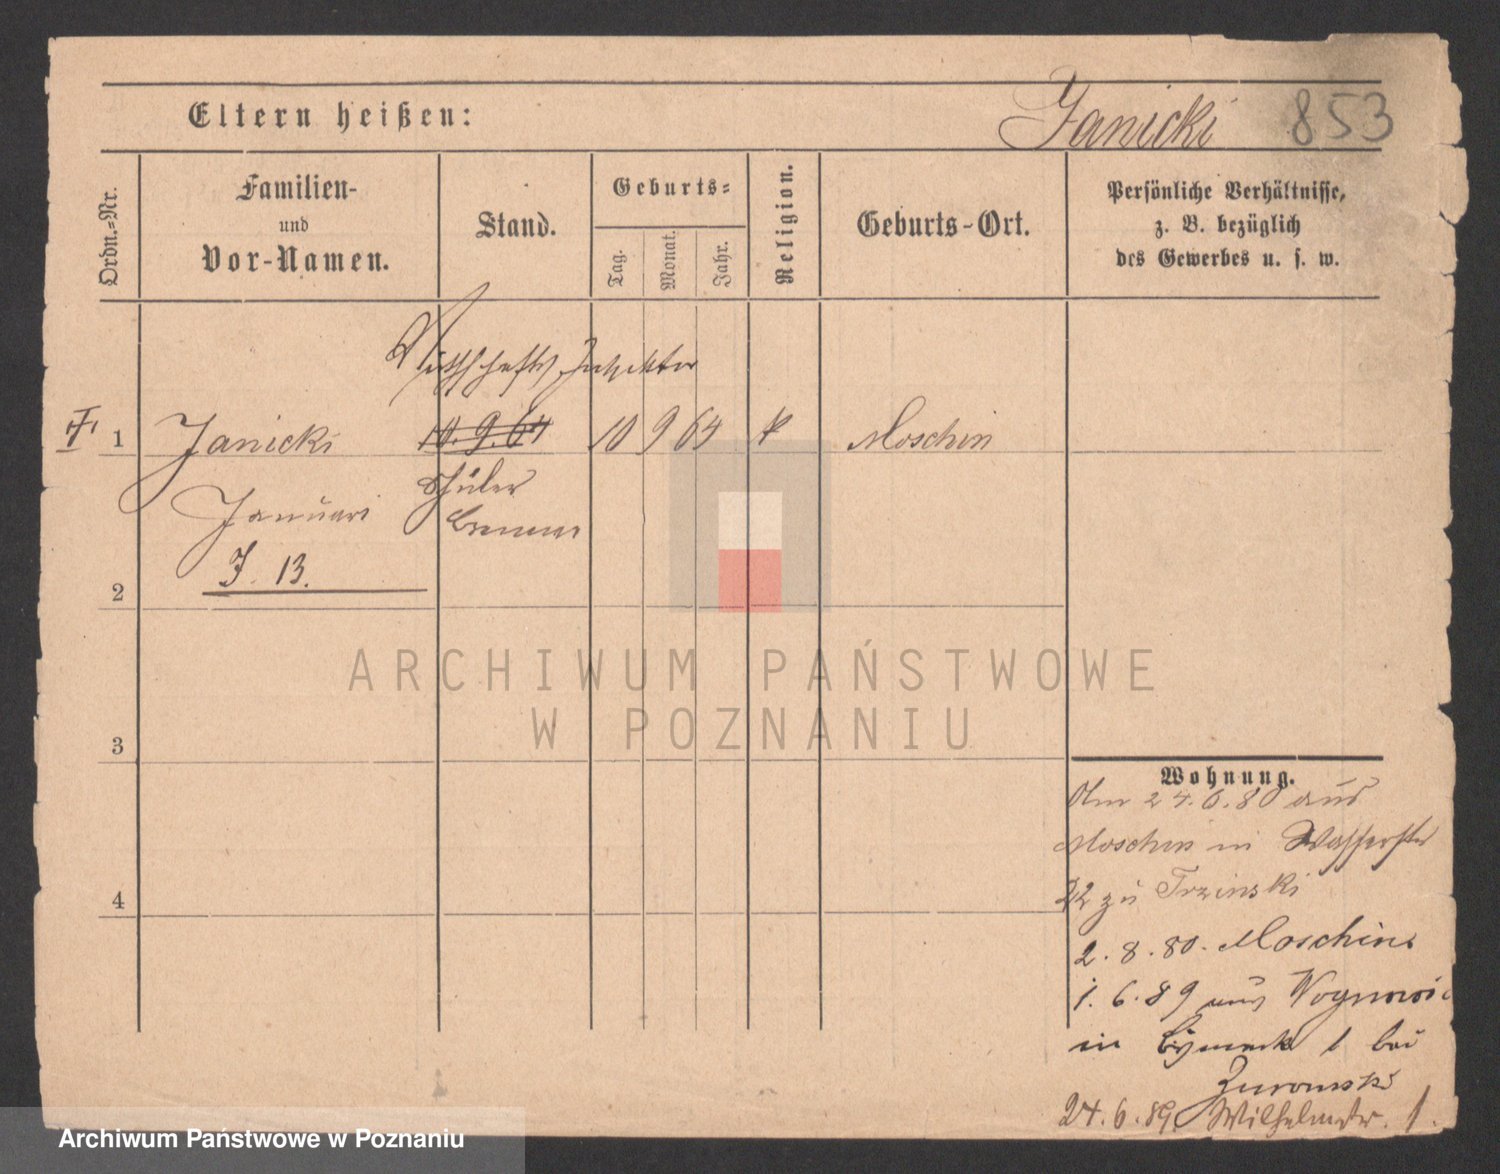 Eltern heißen:
Janicki 853
Ordn.-Nr.
Familien-
und
Vor-Namen.
Stand.
Geburts-
Tag.
Monat.
Jahr.
Religion.
Geburts-Ort.
Persönliche Verhältnisse,
z. B. bezüglich
des Gewerbes u. s. w.
Wirthschafts Inspektor
1 Janicki 10.9.64 10 9 64 k Moschin
Schüler
Januari
J. 13.
2
ARCHIWUM PAŃSTWOWE
W POZNANIU
3
Wohnung.
Am 24.6.80 aus
Moschin in Wasserstr
22 zu Trzinski
4
2.8.80. Moschin
1.6.89 aus
in 1 bei
Zuromski
24.6.89. Wilhelmstr. 1.
Archiwum Państwowe w Poznaniu